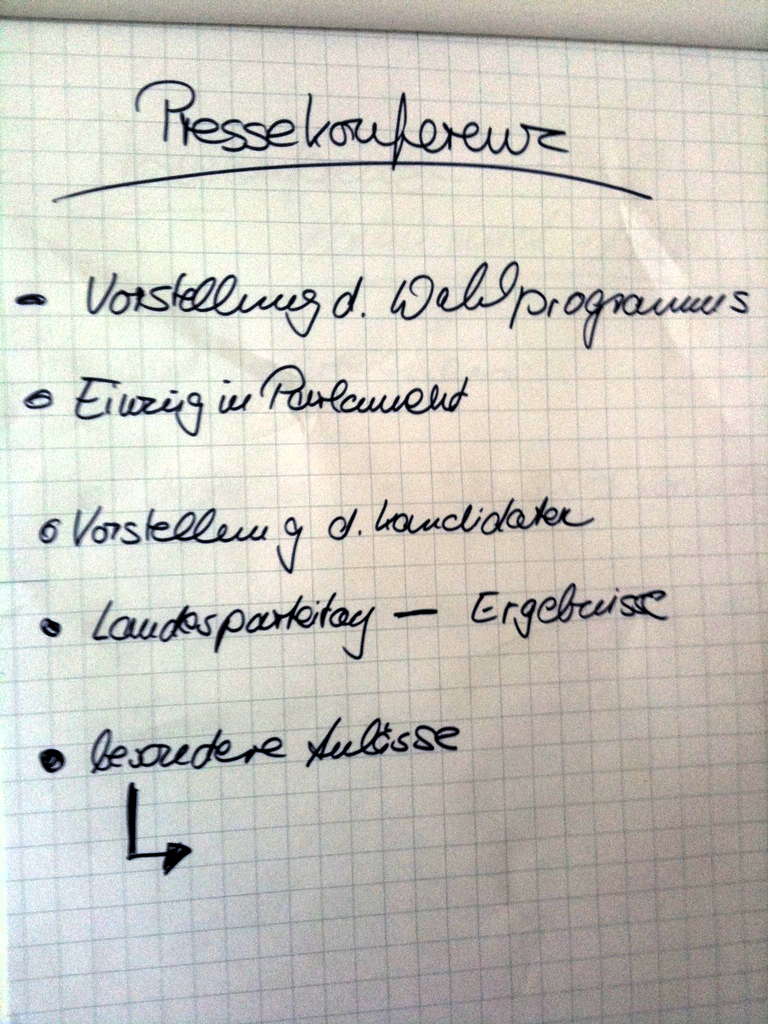 Pressekonferenz
- Vorstellung d. Wahlprogramms
• Einzug in Parlament
• Vorstellung d. Kandidaten
• Landesparteitag - Ergebnisse
• besondere Anlässe